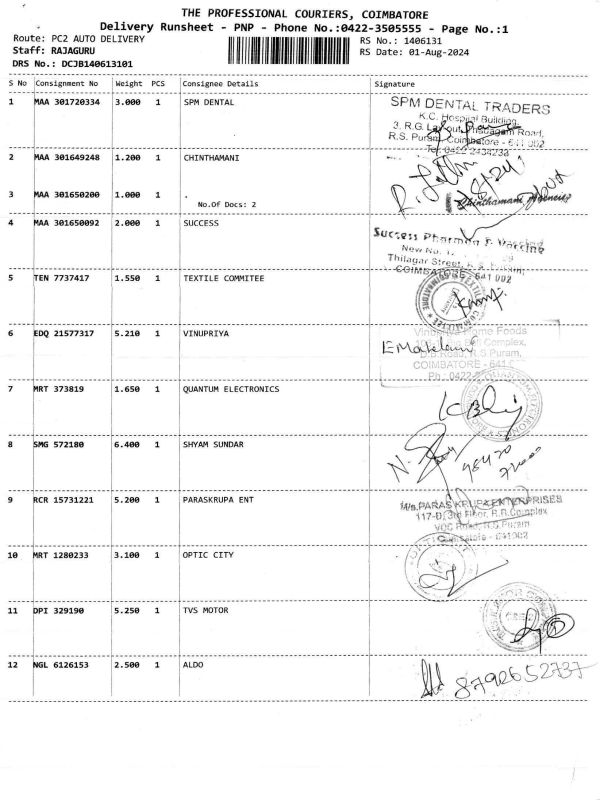 THE PROFESSIONAL COURIERS, COIMBATORE
Delivery Runsheet - PNP - Phone No.:0422-3505555 - Page No.:1
Route: PC2 AUTO DELIVERY
RS No.: 1406131
Staff: RAJAGURU
RS Date: 01-Aug-2024
DRS No.: DCJB140613101
S No Consignment No Weight PCS Consignee Details Signature
1 MAA 301720334 3.000 1 SPM DENTAL
SPM DENTAL TRADERS
K.C. Hospital Building,
3, R.G. Layout, Road,
R.S. Puram, Coimbatore - 641 002
Tel: 0422 2434233
2 MAA 301649248 1.200 1 CHINTHAMANI
3 MAA 301650200 1.000 1 .
No.Of Docs: 2
Chinthamani Agencies
4 MAA 301650092 2.000 1 SUCCESS
Success Pharma & Vaccine
New No. 1
Thilagar Street,
COIMBATORE - 641 002
5 TEN 7737417 1.550 1 TEXTILE COMMITEE
6 EDQ 21577317 5.210 1 VINUPRIYA
Home Foods
Complex,
D.B.Road, R.S Puram,
COIMBATORE - 641
Ph : 0422
7 MRT 373819 1.650 1 QUANTUM ELECTRONICS
8 SMG 572180 6.400 1 SHYAM SUNDAR
9 RCR 15731221 5.200 1 PARASKRUPA ENT
M/s.PARASKRUPA ENTERPRISES
117-D, 3rd Floor, R.R.Complex
VCC Road, R.S.Puram
Coimbatore - 641002
10 MRT 1280233 3.100 1 OPTIC CITY
11 DPI 329190 5.250 1 TVS MOTOR
12 NGL 6126153 2.500 1 ALDO
8792652737